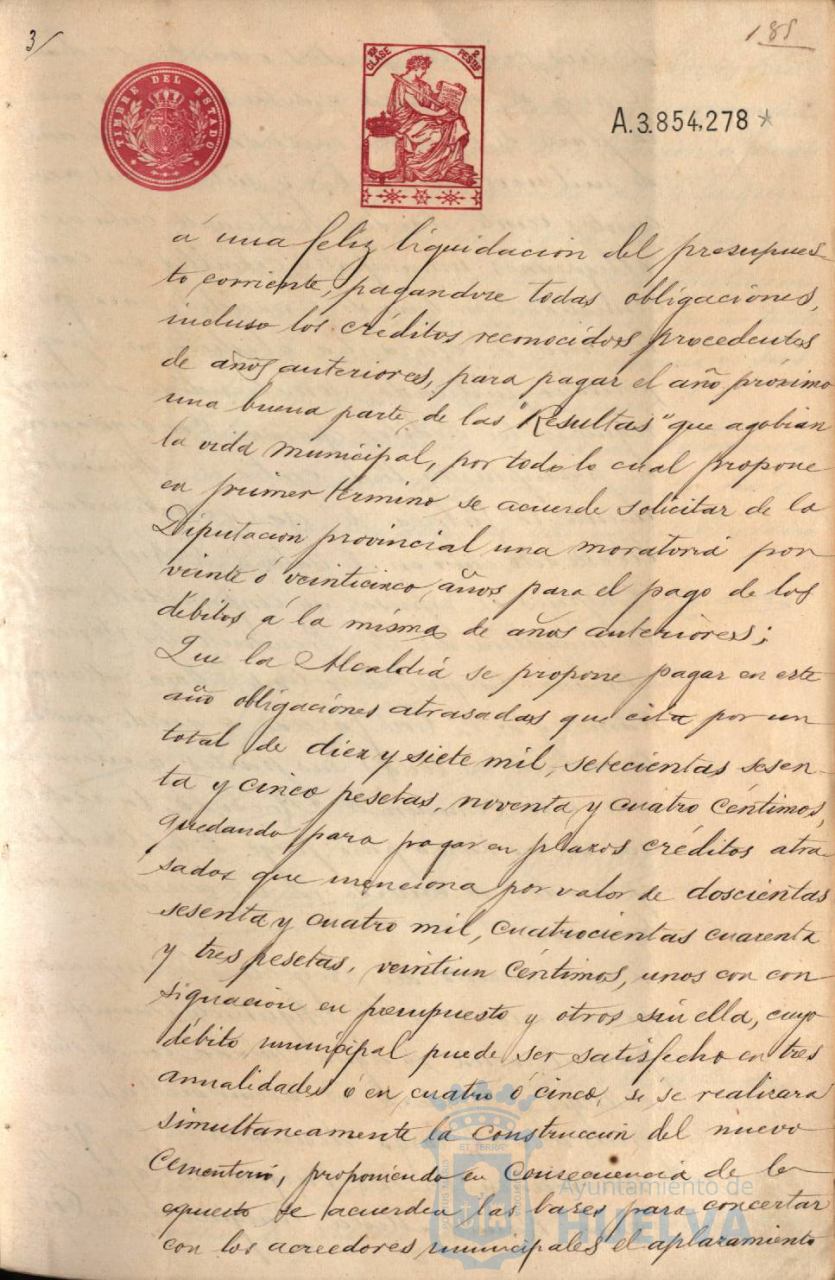 3/
185
TIMBRE DEL ESTADO
10ª CLASE
2 PESETAS
A.3.854,278*
á una feliz liquidación del presupues-
to corriente, pagandose todas obligaciones,
incluso los créditos reconocidos procedentes
de años anteriores, para pagar el año próximo
una buena parte de las "Resultas" que agobian
la vida municipal, por todo lo cual propone
en primer término, se acuerde solicitar de la
Diputación provincial una moratoria por
veinte ó veinticinco años para el pago de los
débitos á la misma de años anteriores;
Que la Alcaldía se propone pagar en este
año obligaciones atrasadas que cita por un
total de diez y siete mil, setecientas sesen-
ta y cinco pesetas, noventa y cuatro céntimos,
quedando para pagar en plazos créditos atra
sados que menciona por valor de doscientas
sesenta y cuatro mil, cuatrocientas cuarenta
y tres pesetas, veintiun céntimos, unos con con
signación en presupuesto y otros sin ella, cuyo
débito municipal puede ser satisfecho en tres
anualidades ó en cuatro ó cinco, si se realizara
simultaneamente la construcción del nuevo
Cementerio, proponiendo en consecuencia de lo
expuesto se acuerden las bases para concertar
con los acreedores municipales el aplazamiento
Ayuntamiento de
HUELVA